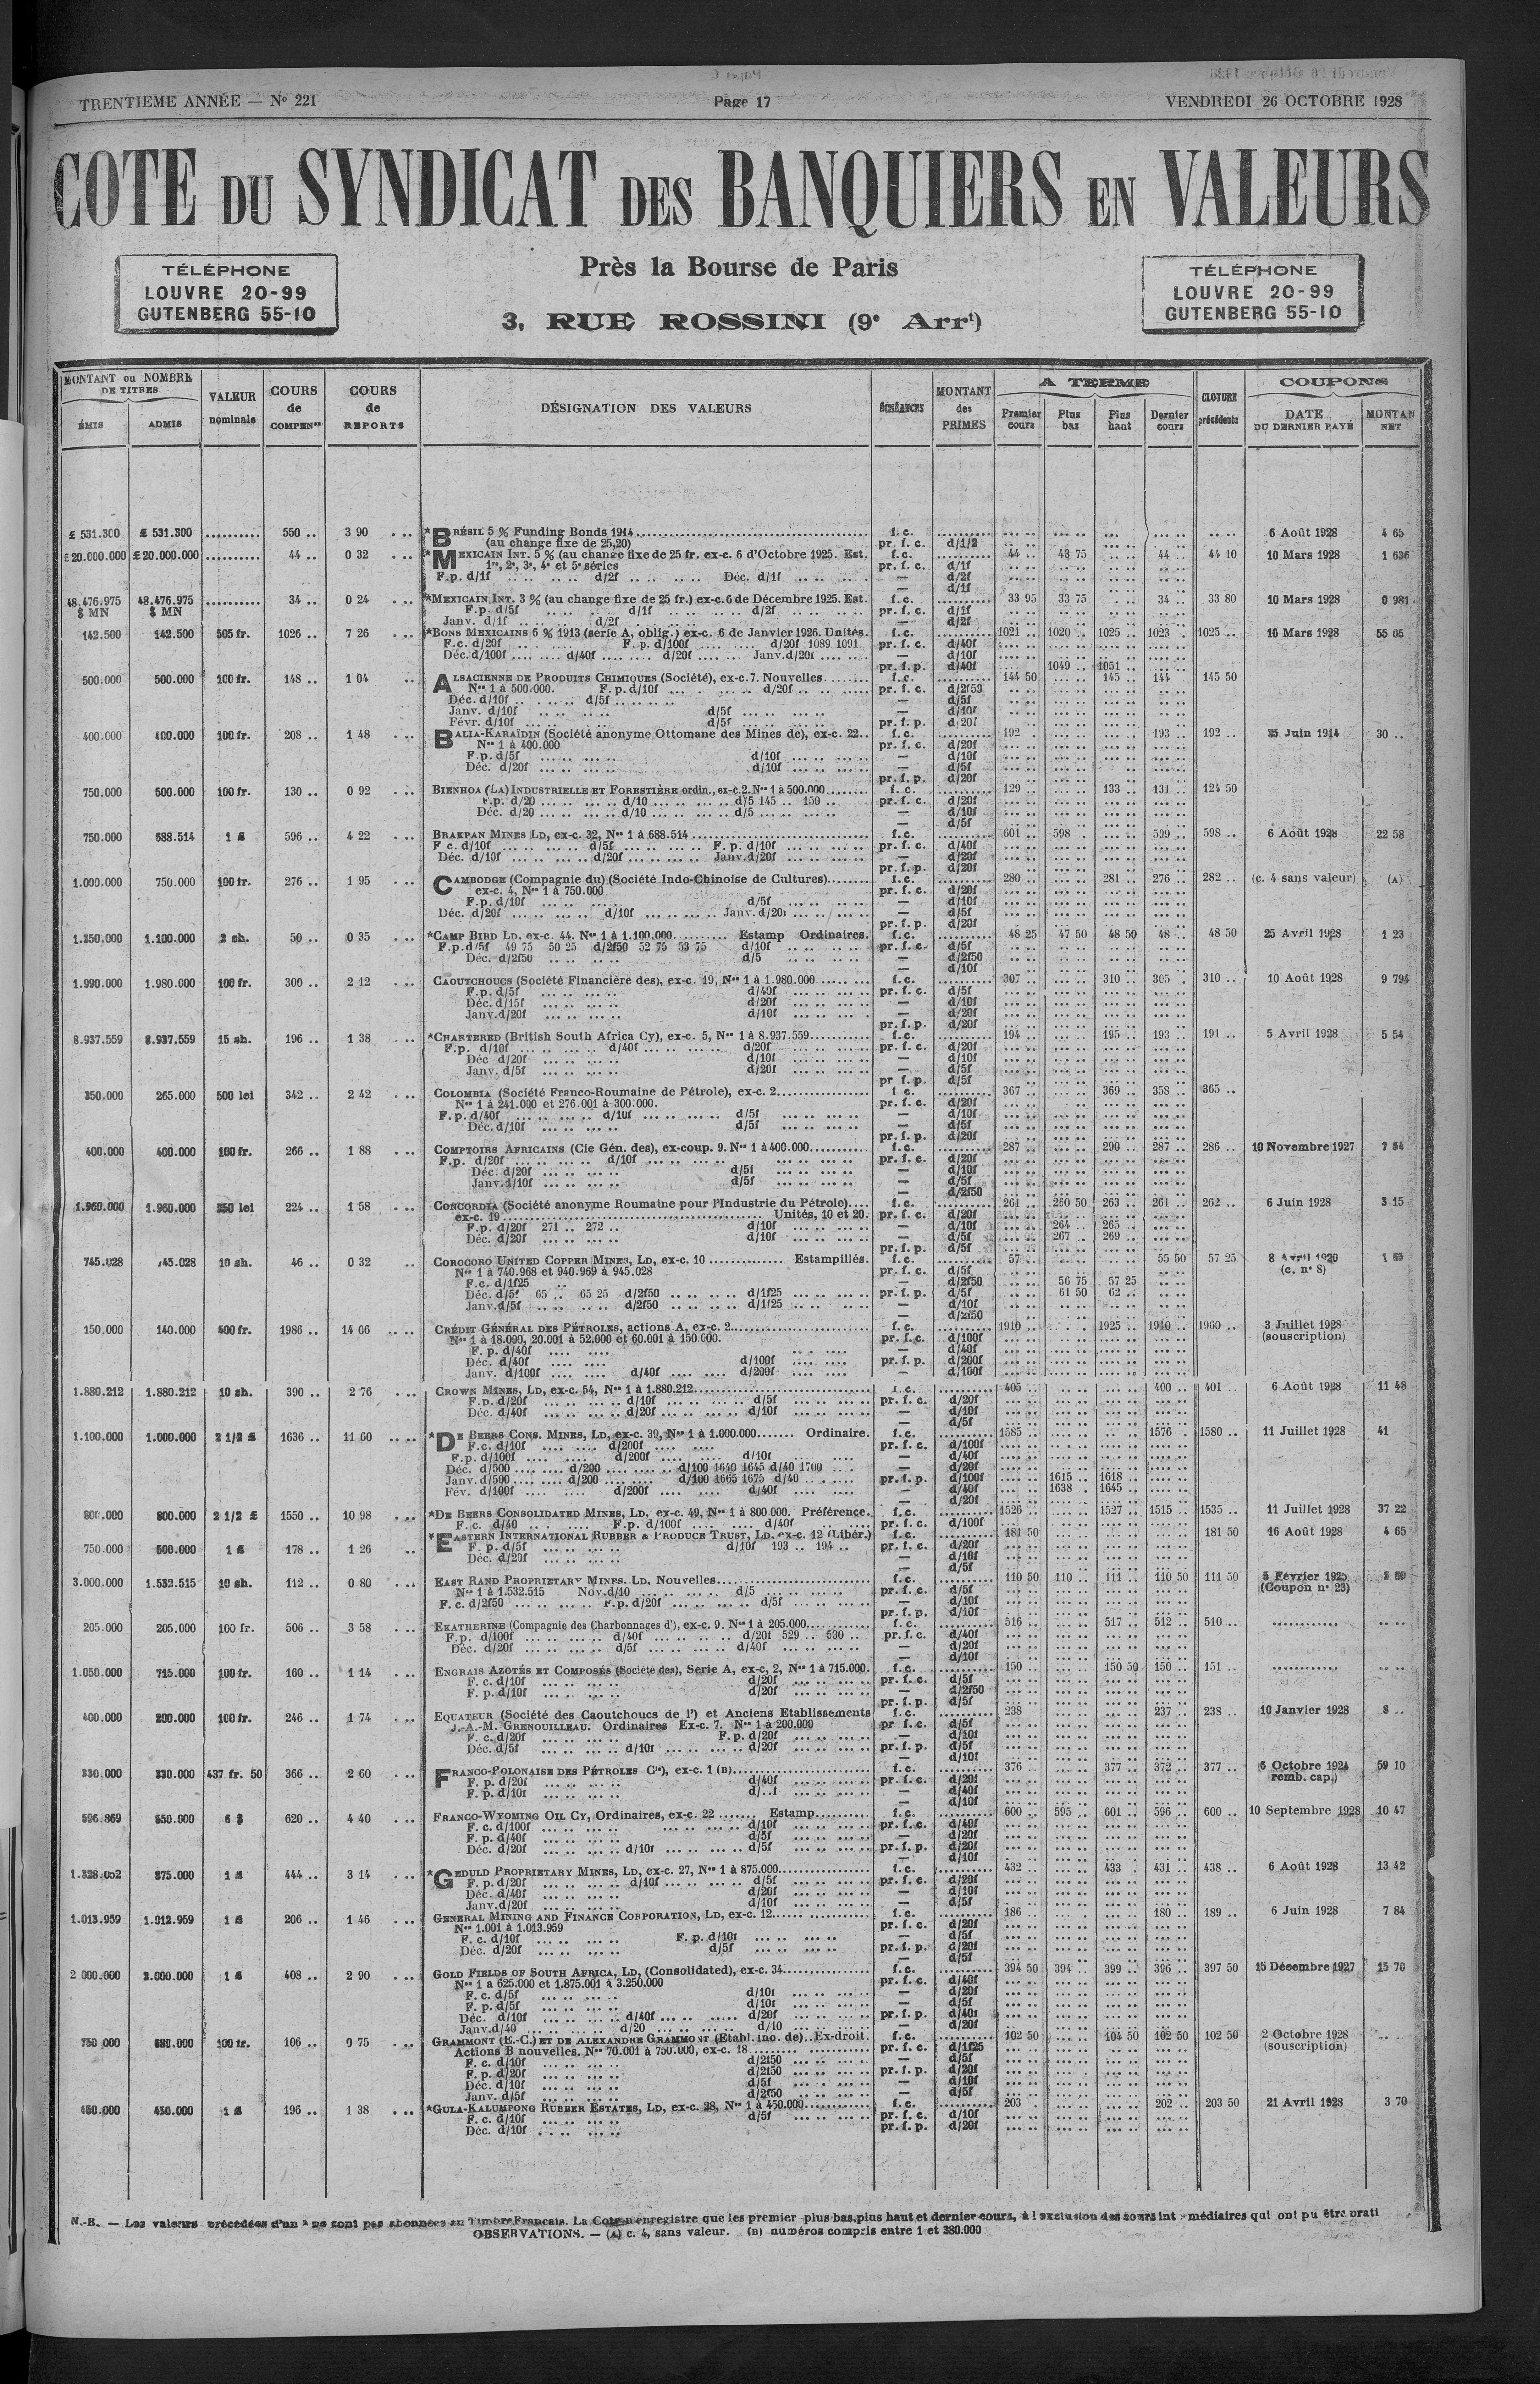 TRENTIEME ANNÉE — Nº 221
Page 17
VENDREDI 26 OCTOBRE 1928
COTE DU SYNDICAT DES BANQUIERS EN VALEURS
TÉLÉPHONE
LOUVRE 20-99
GUTENBERG 55-10
Près la Bourse de Paris
3, RUE ROSSINI (9e Arrt)
TÉLÉPHONE
LOUVRE 20-99
GUTENBERG 55-10
MONTANT ou NOMBRE DE TITRES
ÉMIS
ADMIS
VALEUR nominale
COURS de COMPENson
COURS de REPORTS
DÉSIGNATION DES VALEURS
ÉCHÉANCES
MONTANT des PRIMES
A TERME
Premier cours
Plus bas
Plus haut
Dernier cours
CLOTURE précédente
COUPONS
DATE DU DERNIER PAYÉ
MONTAN NET
£ 531.300 £ 531.300 .......... 550 .. 3 90 *BRÉSIL 5 % Funding Bonds 1914 f.c. 6 Août 1928 4 65
(au change fixe de 25,20) pr. f. c. d/1/2
£20.000.000 £20.000.000 .......... 44 .. 0 32 *MEXICAIN INT. 5 % (au change fixe de 25 fr. ex-c. 6 d'Octobre 1925. Est. f.c. 44 .. 43 75 44 .. 44 10 10 Mars 1928 1 636
1re, 2e, 3e, 4e et 5e séries pr. f. c. d/1f
F.p. d/1f d/2f Déc. d/1f — d/2f
— d/1f
48.476.975 $ MN 48.476.975 $ MN .......... 34 .. 0 24 *MEXICAIN INT. 3 % (au change fixe de 25 fr.) ex-c. 6 de Décembre 1925. Est. f.c. 33 95 33 75 34 .. 33 80 10 Mars 1928 0 981
F.p. d/5f d/1f d/2f pr. f. c. d/1f
Janv. d/1f d/2f — d/2f
142.500 142.500 505 fr. 1026 .. 7 26 *BONS MEXICAINS 6 % 1913 (série A, oblig.) ex-c. 6 de Janvier 1926. Unités. f.c. 1021 .. 1020 .. 1025 .. 1023 1025 .. 10 Mars 1928 55 05
F.c. d/20f F.p. d/100f d/20f 1089 1091 pr. f. c. d/40f
Déc. d/100f d/40f d/20f Janv. d/20f — d/10f
pr. f. p. d/40f 1049 .. 1051 ..
500.000 500.000 100 fr. 148 .. 1 04 ALSACIENNE DE PRODUITS CHIMIQUES (Société), ex-c. 7. Nouvelles f.c. 144 50 145 .. 144 .. 145 50
Nos 1 à 500.000. F.p. d/10f d/20f pr. f. c. d/2f50
Déc. d/10f d/5f — d/5f
Janv. d/10f d/5f — d/10f
Févr. d/10f d/5f pr. f. p. d/20f
400.000 400.000 100 fr. 208 .. 1 48 BALIA-KARAÏDIN (Société anonyme Ottomane des Mines de), ex-c. 22 f.c. 192 193 .. 192 .. 25 Juin 1914 30 ..
Nos 1 à 400.000 pr. f. c. d/20f
F.p. d/5f d/10f — d/10f
Déc. d/20f d/10f — d/5f
pr. f. p. d/20f
750.000 500.000 100 fr. 130 .. 0 92 BIENHOA (LA) INDUSTRIELLE ET FORESTIÈRE ordin., ex-c. 2. Nos 1 à 500.000 f.c. 129 133 .. 131 .. 124 50
F.p. d/20 d/10 d/5 145 .. 150 .. pr. f. c. d/20f
Déc. d/20 d/10 d/5 — d/10f
— d/5f
750.000 688.514 1 £ 596 .. 4 22 BRAKPAN MINES LD, ex-c. 32, Nos 1 à 688.514 f.c. 601 598 599 .. 598 .. 6 Août 1928 22 58
F c. d/10f d/5f F. p. d/10f pr. f. c. d/40f
Déc. d/10f d/20f Janv. d/20f — d/20f
pr. f. p. d/20f
1.000.000 750.000 100 fr. 276 .. 1 95 CAMBODGE (Compagnie du) (Société Indo-Chinoise de Cultures) f.c. 280 281 .. 276 .. 282 .. (c. 4 sans valeur) (A)
ex-c. 4, Nos 1 à 750.000 pr. f. c. d/20f
F.p. d/10f d/5f — d/10f
Déc. d/20f d/10f Janv. d/20f — d/5f
pr. f. p. d/20f
1.350.000 1.100.000 2 sh. 50 .. 0 35 *CAMP BIRD LD. ex-c. 44. Nos 1 à 1.100.000 Estamp Ordinaires. f.c. 48 25 47 50 48 50 48 .. 48 50 25 Avril 1928 1 23
F.p. d/5f 49 75 50 25 d/2f50 52 75 53 75 d/10f pr. f. c. d/5f
Déc. d/2f50 d/5 — d/2f50
— d/10f
1.990.000 1.980.000 100 fr. 300 .. 2 12 CAOUTCHOUCS (Société Financière des), ex-c. 19, Nos 1 à 1.980.000 f.c. 307 310 .. 305 310 .. 10 Août 1928 9 794
F.p. d/5f d/40f pr. f. c. d/5f
Déc. d/15f d/20f — d/10f
Janv. d/20f d/10f — d/20f
pr. f. p. d/20f
8.937.559 8.937.559 15 sh. 196 .. 1 38 *CHARTERED (British South Africa Cy), ex-c. 5, Nos 1 à 8.937.559 f.c. 194 195 .. 193 .. 191 .. 5 Avril 1928 5 54
F.p. d/10f d/40f d/20f pr. f. c. d/20f
Déc d/20f d/10f — d/10f
Janv. d/5f d/20f — d/5f
pr f. p. d/5f
350.000 265.000 500 lei 342 .. 2 42 COLOMBIA (Société Franco-Roumaine de Pétrole), ex-c. 2 f c. 367 369 .. 358 .. 365 ..
Nos 1 à 241.000 et 276.001 à 300.000. pr. f. c. d/20f
F.p. d/40f d/10f d/5f — d/10f
Déc. d/10f d/5f — d/5f
pr. f. p. d/20f
400.000 400.000 100 fr. 266 .. 1 88 COMPTOIRS AFRICAINS (Cie Gén. des), ex-coup. 9. Nos 1 à 400.000 f.c. 287 290 .. 287 .. 286 .. 10 Novembre 1927 7 84
F.p. d/20f d/10f pr. f. c. d/20f
Déc. d/20f d/5f — d/10f
Janv. d/10f d/5f — d/5f
— d/2f50
1.960.000 1.960.000 250 lei 224 .. 1 58 CONCORDIA (Société anonyme Roumaine pour l'Industrie du Pétrole) f.c. 261 260 50 263 .. 261 .. 262 .. 6 Juin 1928 3 15
ex-c. 19 Unités, 10 et 20. pr. f. c. d/20f
F.p. d/20f 271 .. 272 .. d/10f — d/10f 264 .. 265 ..
Déc. d/20f d/10f — d/5f 267 .. 269 ..
pr. f. p. d/5f
745.028 745.028 10 sh. 46 .. 0 32 COROCORO UNITED COPPER MINES, LD, ex-c. 10 Estampillés. f.c. 57 55 50 57 25 8 Avril 1920 1 65
Nos 1 à 740.968 et 940.969 à 945.028 pr. f. c. d/5f (c. nº 8)
F.c. d/1f25 — d/2f50 56 75 57 25
Déc. d/5f 65 .. 65 25 d/2f50 d/1f25 pr. f. p. d/5f 61 50 62 ..
Janv. d/5f d/2f50 d/1f25 — d/10f
— d/2f50
150.000 140.000 500 fr. 1986 .. 14 06 CRÉDIT GÉNÉRAL DES PÉTROLES, actions A, ex-c. 2 f.c. 1910 1925 .. 1940 .. 1960 .. 3 Juillet 1928
Nos 1 à 18.000, 20.001 à 52.000 et 60.001 à 150.000. pr. f. c. d/100f (souscription)
F. p. d/40f — d/40f
Déc. d/40f d/100f pr. f. p. d/200f
Janv. d/100f d/40f d/200f — d/100f
1.880.212 1.880.212 10 sh. 390 .. 2 76 CROWN MINES, LD, ex-c. 54, Nos 1 à 1.880.212 f.c. 405 400 .. 401 .. 6 Août 1928 11 48
F.p. d/20f d/10f d/5f pr. f. c. d/20f
Déc. d/40f d/20f d/10f — d/10f
— d/5f
1.100.000 1.000.000 2 1/2 £ 1636 .. 11 60 *DE BEERS CONS. MINES, LD, ex-c. 39, Nos 1 à 1.000.000 Ordinaire. f.c. 1585 1576 .. 1580 .. 11 Juillet 1928 41
F.c. d/10f d/200f pr. f. c. d/100f
F.p. d/100f d/200f d/10f — d/40f
Déc. d/500 d/200 d/100 1640 1645 d/40 1700 — d/20f
Janv. d/500 d/200 d/100 1665 1675 d/40 pr. f. p. d/100f 1615 .. 1618 ..
Fév. d/100f d/200f d/40f — d/40f 1638 .. 1645 ..
— d/20f
800.000 800.000 2 1/2 £ 1550 .. 10 98 *DE BEERS CONSOLIDATED MINES, LD, ex-c. 49, Nos 1 à 800.000. Préférence. f.c. 1526 1527 .. 1515 .. 1535 .. 11 Juillet 1928 37 22
F. c. d/40 F.p. d/100f d/40f pr. f. c. d/100f
750.000 500.000 1 £ 178 .. 1 26 *EASTERN INTERNATIONAL RUBBER & PRODUCE TRUST, LD. ex-c. 12 (Libér.) f.c. 181 50 181 50 16 Août 1928 4 65
F. p. d/5f d/10f 193 .. 194 .. pr. f. c. d/20f
Déc. d/20f — d/10f
— d/5f
3.000.000 1.532.515 10 sh. 112 .. 0 80 EAST RAND PROPRIETARY MINES. LD, Nouvelles f.c. 110 50 110 .. 111 .. 110 50 111 50 5 Février 1925
Nos 1 à 1.532.515 Nov. d/10 d/5 pr. f. c. d/5f (Coupon nº 23)
F. c. d/2f50 F.p. d/20f d/5f — d/10f
pr. f. p. d/10f
205.000 205.000 100 fr. 506 .. 3 58 EKATHERINE (Compagnie des Charbonnages d'), ex-c. 9. Nos 1 à 205.000 f.c. 516 517 .. 512 .. 510 ..
F.p. d/100f d/40f d/20f 529 .. 530 .. pr. f. c. d/40f
Déc. d/20f d/5f d/40f — d/20f
— d/10f
1.050.000 715.000 100 fr. 160 .. 1 14 ENGRAIS AZOTÉS ET COMPOSÉS (Société des), Série A, ex-c, 2, Nos 1 à 715.000. f.c. 150 150 50 150 .. 151 ..
F. c. d/10f d/20f pr. f. c. d/5f
F. p. d/10f d/20f — d/2f50
pr. f. p. d/5f
400.000 200.000 100 fr. 246 .. 1 74 EQUATEUR (Société des Caoutchoucs de l') et Anciens Etablissements f.c. 238 237 .. 238 .. 10 Janvier 1928 8 ..
J.-A.-M. GRENOUILLEAU. Ordinaires Ex-c. 7. Nos 1 à 200.000 pr f. c. d/5f
F. c. d/20f F.p. d/20f — d/10f
Déc. d/5f d/10f d/20f pr. f. p. d/5f
— d/10f
330.000 330.000 437 fr. 50 366 .. 2 60 FRANCO-POLONAISE DES PÉTROLES Cie), ex-c. 1 (B) f.c. 376 377 .. 372 .. 377 .. 6 Octobre 1924 59 10
F. p. d/20f d/40f pr. f. c. d/20f remb. cap.)
F. p. d/10f d/..f — d/40f
— d/10f
596.869 550.000 6 $ 620 .. 4 40 FRANCO-WYOMING OIL CY, Ordinaires, ex-c. 22 Estamp f.c. 600 595 601 .. 596 .. 600 .. 10 Septembre 1928 10 47
F. c. d/100f d/10f pr. f. c. d/40f
F. p. d/40f d/5f — d/20f
Déc. d/20f d/10f d/5f pr. f. p. d/20f
— d/10f
1.328.052 875.000 1 £ 444 .. 3 14 *GEDULD PROPRIETARY MINES, LD, ex-c. 27, Nos 1 à 875.000 f.c. 432 433 431 .. 438 .. 6 Août 1928 13 42
F. p. d/20f d/10f d/5f pr. f. c. d/20f
Déc. d/40f d/20f — d/10f
Janv. d/20f d/10f — d/5f
1.013.959 1.012.959 1 £ 206 .. 1 46 GENERAL MINING AND FINANCE CORPORATION, LD, ex-c. 12 f.c. 186 180 .. 189 .. 6 Juin 1928 7 84
Nos 1.001 à 1.013.959 pr. f. c. d/20f
F. c. d/10f F. p. d/10f — d/5f
Déc. d/20f d/5f pr. f. p. d/20f
— d/5f
2 000.000 2.000.000 1 £ 408 .. 2 90 GOLD FIELDS OF SOUTH AFRICA, LD, (Consolidated), ex-c. 34 f.c. 394 50 394 399 .. 396 .. 397 50 15 Décembre 1927 15 70
Nos 1 à 625.000 et 1.875.001 à 3.250.000 pr. f. c. d/40f
F. c. d/5f d/10f — d/20f
F. p. d/5f d/10f — d/5f
Déc. d/10f d/40f d/20f pr. f. p. d/40f
Janv. d/40 d/20 d/10 — d/20f
750 000 680.000 100 fr. 106 .. 9 75 GRAMMONT (E.-C.) ET DE ALEXANDRE GRAMMONT (Etabl. ind. de) Ex-droit. f.c. 102 50 104 50 102 50 102 50 2 Octobre 1928
Actions B nouvelles. Nos 70.001 à 750.000, ex-c. 18 pr. f. c. d/1f25 (souscription)
F. c. d/10f d/2f50 — d/5f
F. p. d/20f d/2f50 pr. f. p. d/20f
Déc. d/10f d/5f — d/10f
Janv. d/5f d/2f50 — d/5f
450.000 450.000 1 £ 196 .. 1 38 *GULA-KALUMPONG RUBBER ESTATES, LD, ex-c. 28, Nos 1 à 450.000 f.c. 203 202 .. 203 50 21 Avril 1928 3 70
F. c. d/10f d/5f pr. f. c. d/10f
Déc. d/10f pr. f. p. d/20f
N.-B. — Les valeurs précédées d'un * ne sont pas abonnées au Timbre Français. La Cote n'enregistre que les premier plus bas, plus haut et dernier cours, à l'exclusion des cours intermédiaires qui ont pu être prati
OBSERVATIONS. — (A) c. 4, sans valeur. (B) numéros compris entre 1 et 380.000